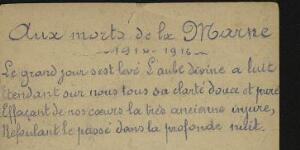 Aux morts de la Marne
– 1914-1916 –
Le grand jour s'est levé L'aube divine a luit
Etendant sur nous tous sa clarté douce et pure
Effaçant de nos cœurs la très ancienne injure,
Refoulant le passé dans la profonde nuit.